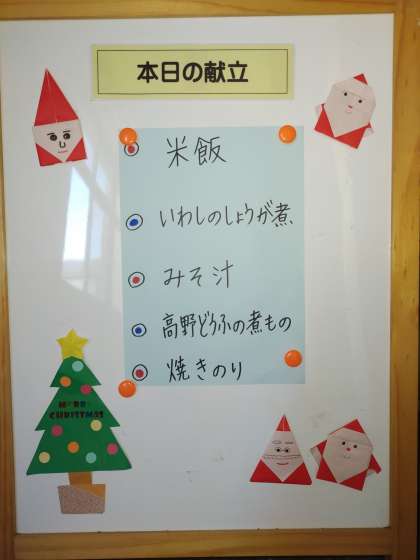 本日の献立
米飯
いわしのしょうが煮
みそ汁
高野どうふの煮もの
焼きのり
MERRY
CHRISTMAS